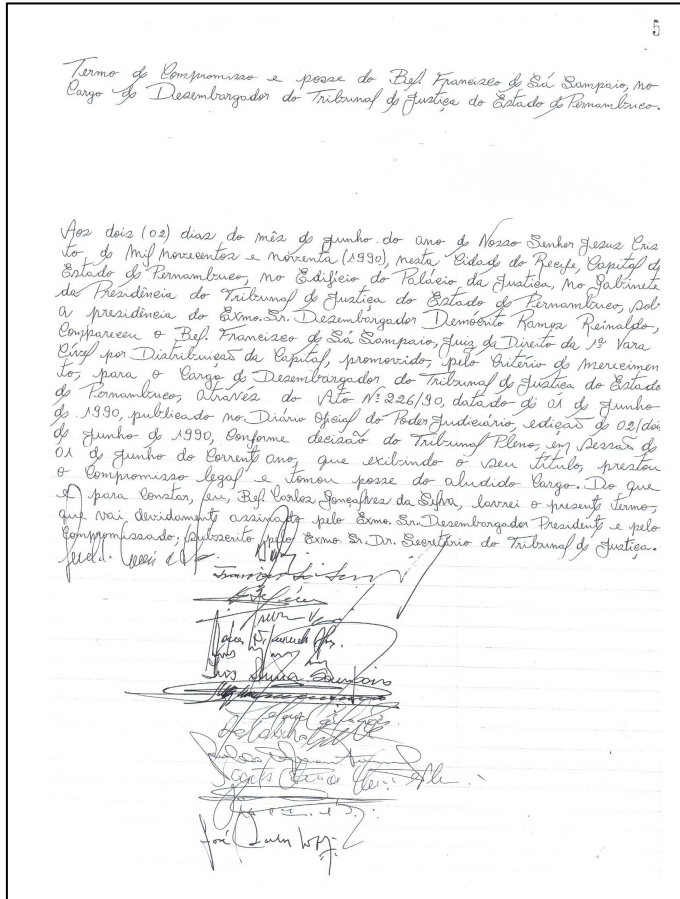 5
Termo de Compromisso e posse do Bel. Francisco de Sá Sampaio, no
Cargo de Desembargador do Tribunal de Justiça do Estado de Pernambuco.
Aos dois (02) dias do mês de junho do ano de Nosso Senhor Jesus Cris
to de Mil novecentos e noventa (1990), nesta Cidade do Recife, Capital do
Estado de Pernambuco, no Edifício do Palácio da Justiça, no Gabinete
da Presidência do Tribunal de Justiça do Estado de Pernambuco, sob
a presidência do Exmo. Sr. Desembargador Demócrito Ramos Reinaldo,
Compareceu o Bel. Francisco de Sá Sampaio, Juiz de Direito da 1ª Vara
Cível por Distribuição da Capital, promovido, pelo Critério de merecimen
to, para o Cargo de Desembargador do Tribunal de Justiça do Estado
de Pernambuco, através do Ato Nº 226/90, datado de 01 de junho
de 1990, publicado no Diário Oficial do Poder Judiciário, edição de 02/dois
de junho de 1990, Conforme decisão do Tribunal Pleno, em sessão de
01 de junho do Corrente ano, que exibindo o seu título, prestou
o Compromisso legal e tomou posse do aludido Cargo. Do que
e para Constar, eu, Bel. Carlos Gonçalves da Silva, lavrei o presente Termo,
que vai devidamente assinado pelo Exmo. Sr. Desembargador Presidente e pelo
Compromissado, subscrito pelo Exmo. Sr. Dr. Secretário do Tribunal de Justiça.
Sampaio
José